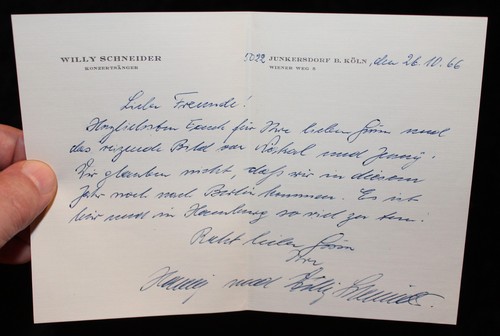 WILLY SCHNEIDER
KONZERTSÄNGER
5022 JUNKERSDORF B. KÖLN, den 26.10.66
WIENER WEG 6
Liebe Freunde!
Herzlichsten Dank für Ihre lieben Grüße und
das reizende Bild von und Jenny.
Wir glauben nicht, daß wir in diesem
Jahr noch nach Berlin kommen. Es ist
hier und in Hamburg so viel zu tun.
Recht liebe Grüße
Ihre
und Willy Schneider